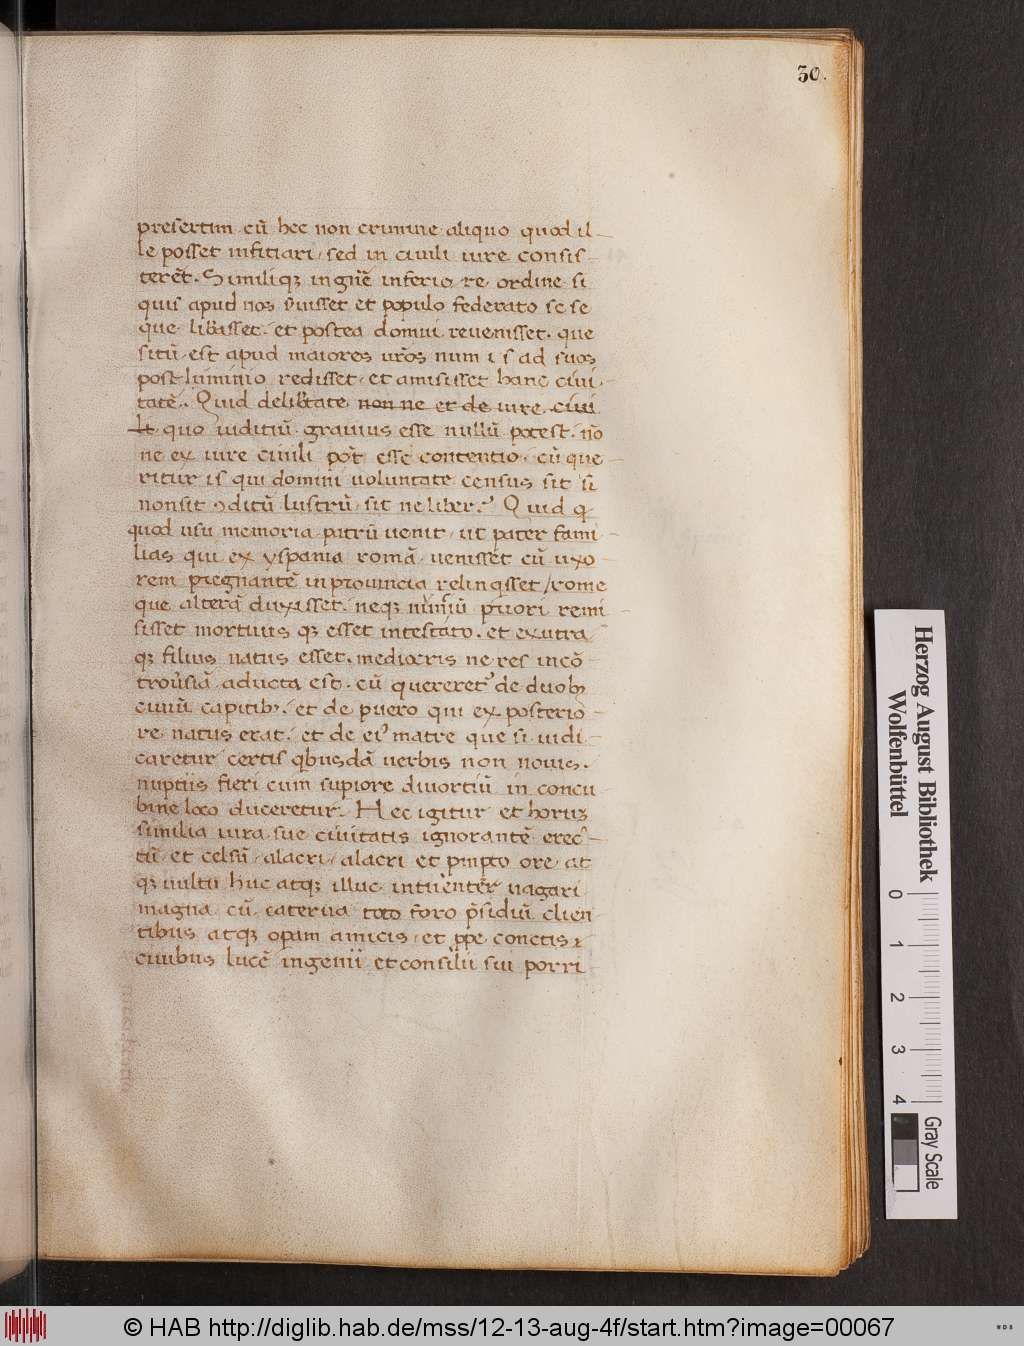 30.
presertim cū hec non crimine aliquo quod il
le posset infitiari, sed in ciuili iure consis
teret̄. Similiqꝫ in gn̄e inferio, re ordine si
quis apud nos s̄uisset et populo federato se se
que lib̄asset, et postea domui reuenisset. que
situ᷑ est apud maiores ur̄os num i s ad suos
post luminio redisset, et amisisset hanc ciui
tatē. Quid delib̄tate non ne et de iure ciui
li quo iuditiū grauius esse nullū potest. n̄o
ne ex iure ciuili pot̄ esse contentio, cū que
ritur is qui domini uoluntate census sit si
non sit ꝯditū lustrū, sit ne liber? Quid ꝙ
quod usu memoria patrū uenit, ut pater fami
lias qui ex yspania romā uenisset cū uxo
rem pregnantē in prouincia relinqsset / rome
que alterā duxisset. neqꝫ nūtiū priori remi
sisset mortuus qꝫ esset intestato. et ex utra
qꝫ filius natus esset. mediocris ne res in cō
trou̓siā aducta est. cū quereret̓ de duobꝫ
ciuiū capitibꝫ. et de puero qui ex posterio
re natus erat. et de ei̓ matre que si iudi
caretur certis qbusdā uerbis non nouis.
nuptiis fieri cum supiore diuortiū in concu
bine loco duceretur. Hec igitur et horuꝫ
similia iura sue ciuitatis ignorantē erec
tū et celsū, alacri, alacri et pmpto ore at
qꝫ uultu huc atqꝫ illuc intuentēr uagari
magna cū caterua toto foro p̄sidiū clien
tibus atqꝫ opam amicis, et ppe cunctis
ciuibus lucē ingenii et consilii sui porri
Herzog August Bibliothek
Wolfenbüttel
0 1 2 3 4
Gray Scale
© HAB http://diglib.hab.de/mss/12-13-aug-4f/start.htm?image=00067
WDB